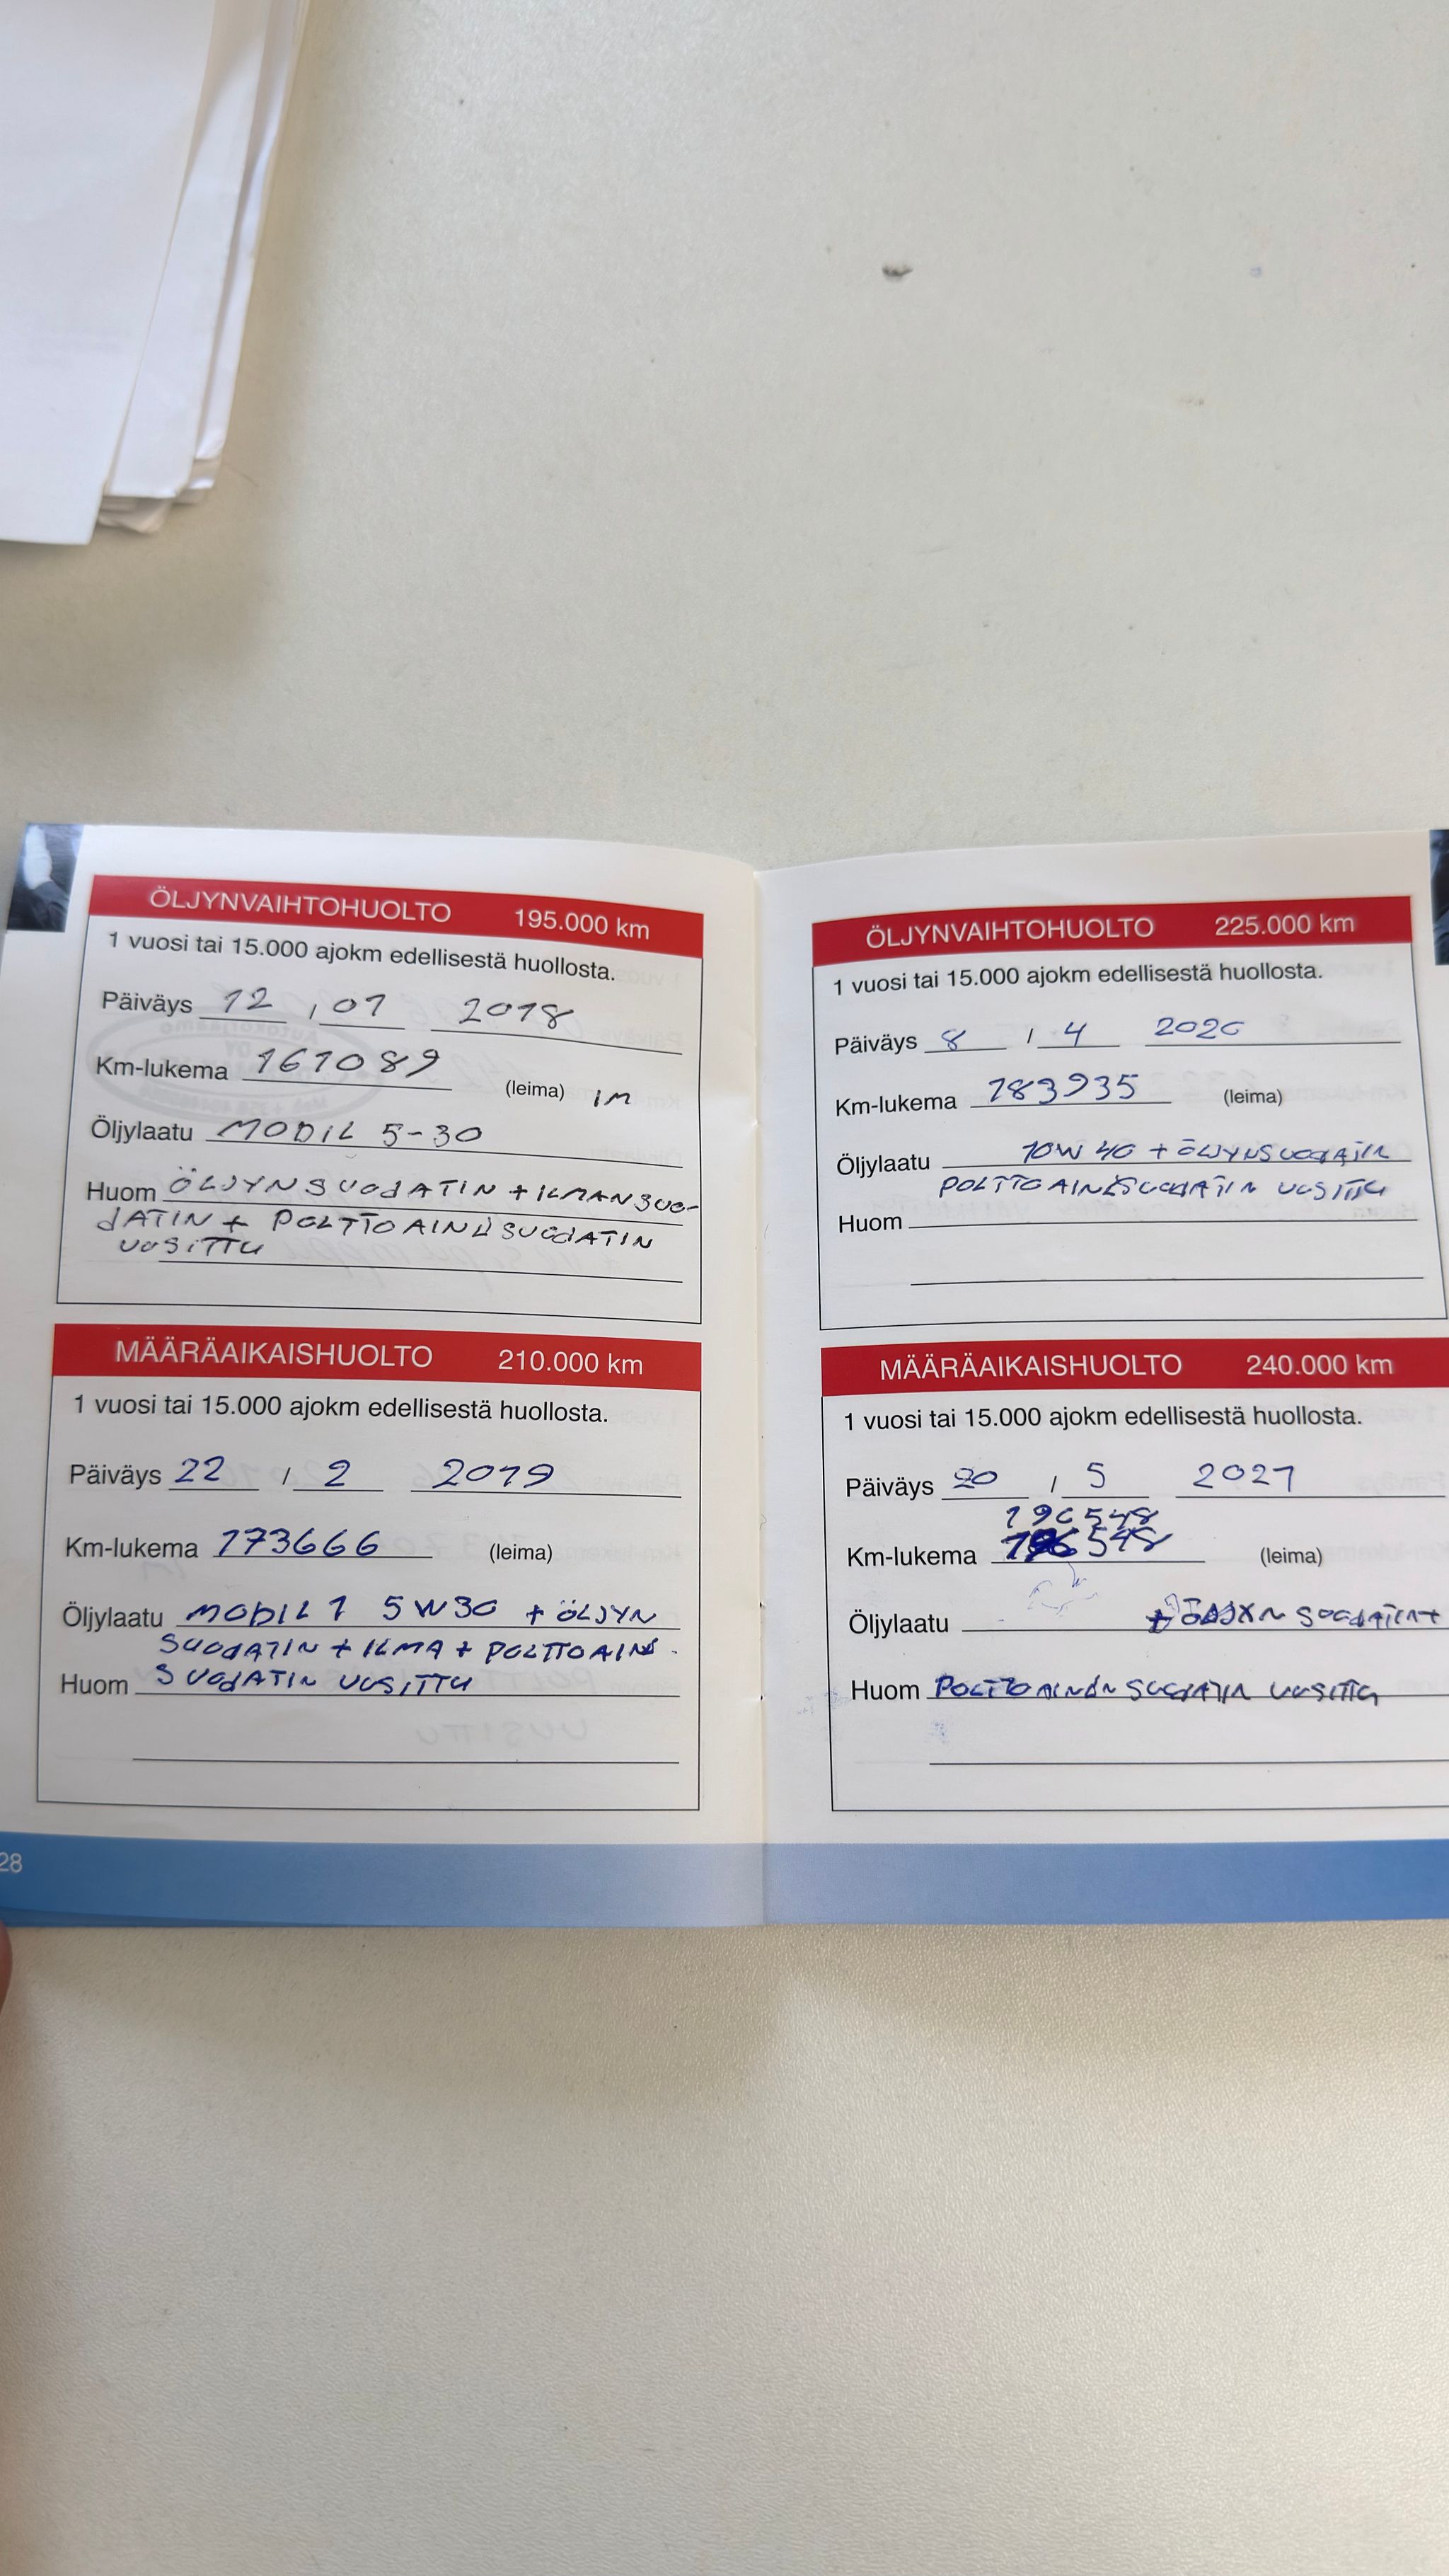 ÖLJYNVAIHTOHUOLTO 195.000 km
1 vuosi tai 15.000 ajokm edellisestä huollosta.
Päiväys 12 / 01 2018
Km-lukema 161089 (leima) IM
Öljylaatu MOBIL 5-30
Huom ÖLJYNSUODATIN + ILMANSUO-
DATIN + POLTTOAINESUODATIN
UUSITTU
MÄÄRÄAIKAISHUOLTO 210.000 km
1 vuosi tai 15.000 ajokm edellisestä huollosta.
Päiväys 22 / 2 2019
Km-lukema 173666 (leima)
Öljylaatu MOBIL 1 5W30 + ÖLJYN
SUODATIN + ILMA + POLTTOAINE -
Huom SUODATIN UUSITTU
28
ÖLJYNVAIHTOHUOLTO 225.000 km
1 vuosi tai 15.000 ajokm edellisestä huollosta.
Päiväys 8 / 4 2020
Km-lukema 183935 (leima)
Öljylaatu 10W40 + ÖLJYNSUODATIN
POLTTOAINESUODATIN UUSITTU
Huom
MÄÄRÄAIKAISHUOLTO 240.000 km
1 vuosi tai 15.000 ajokm edellisestä huollosta.
Päiväys 20 / 5 2021
196548
Km-lukema 196548 (leima)
Öljylaatu + ÖLJYN SUODATIN +
Huom POLTTOAINEN SUODATIN UUSITTU